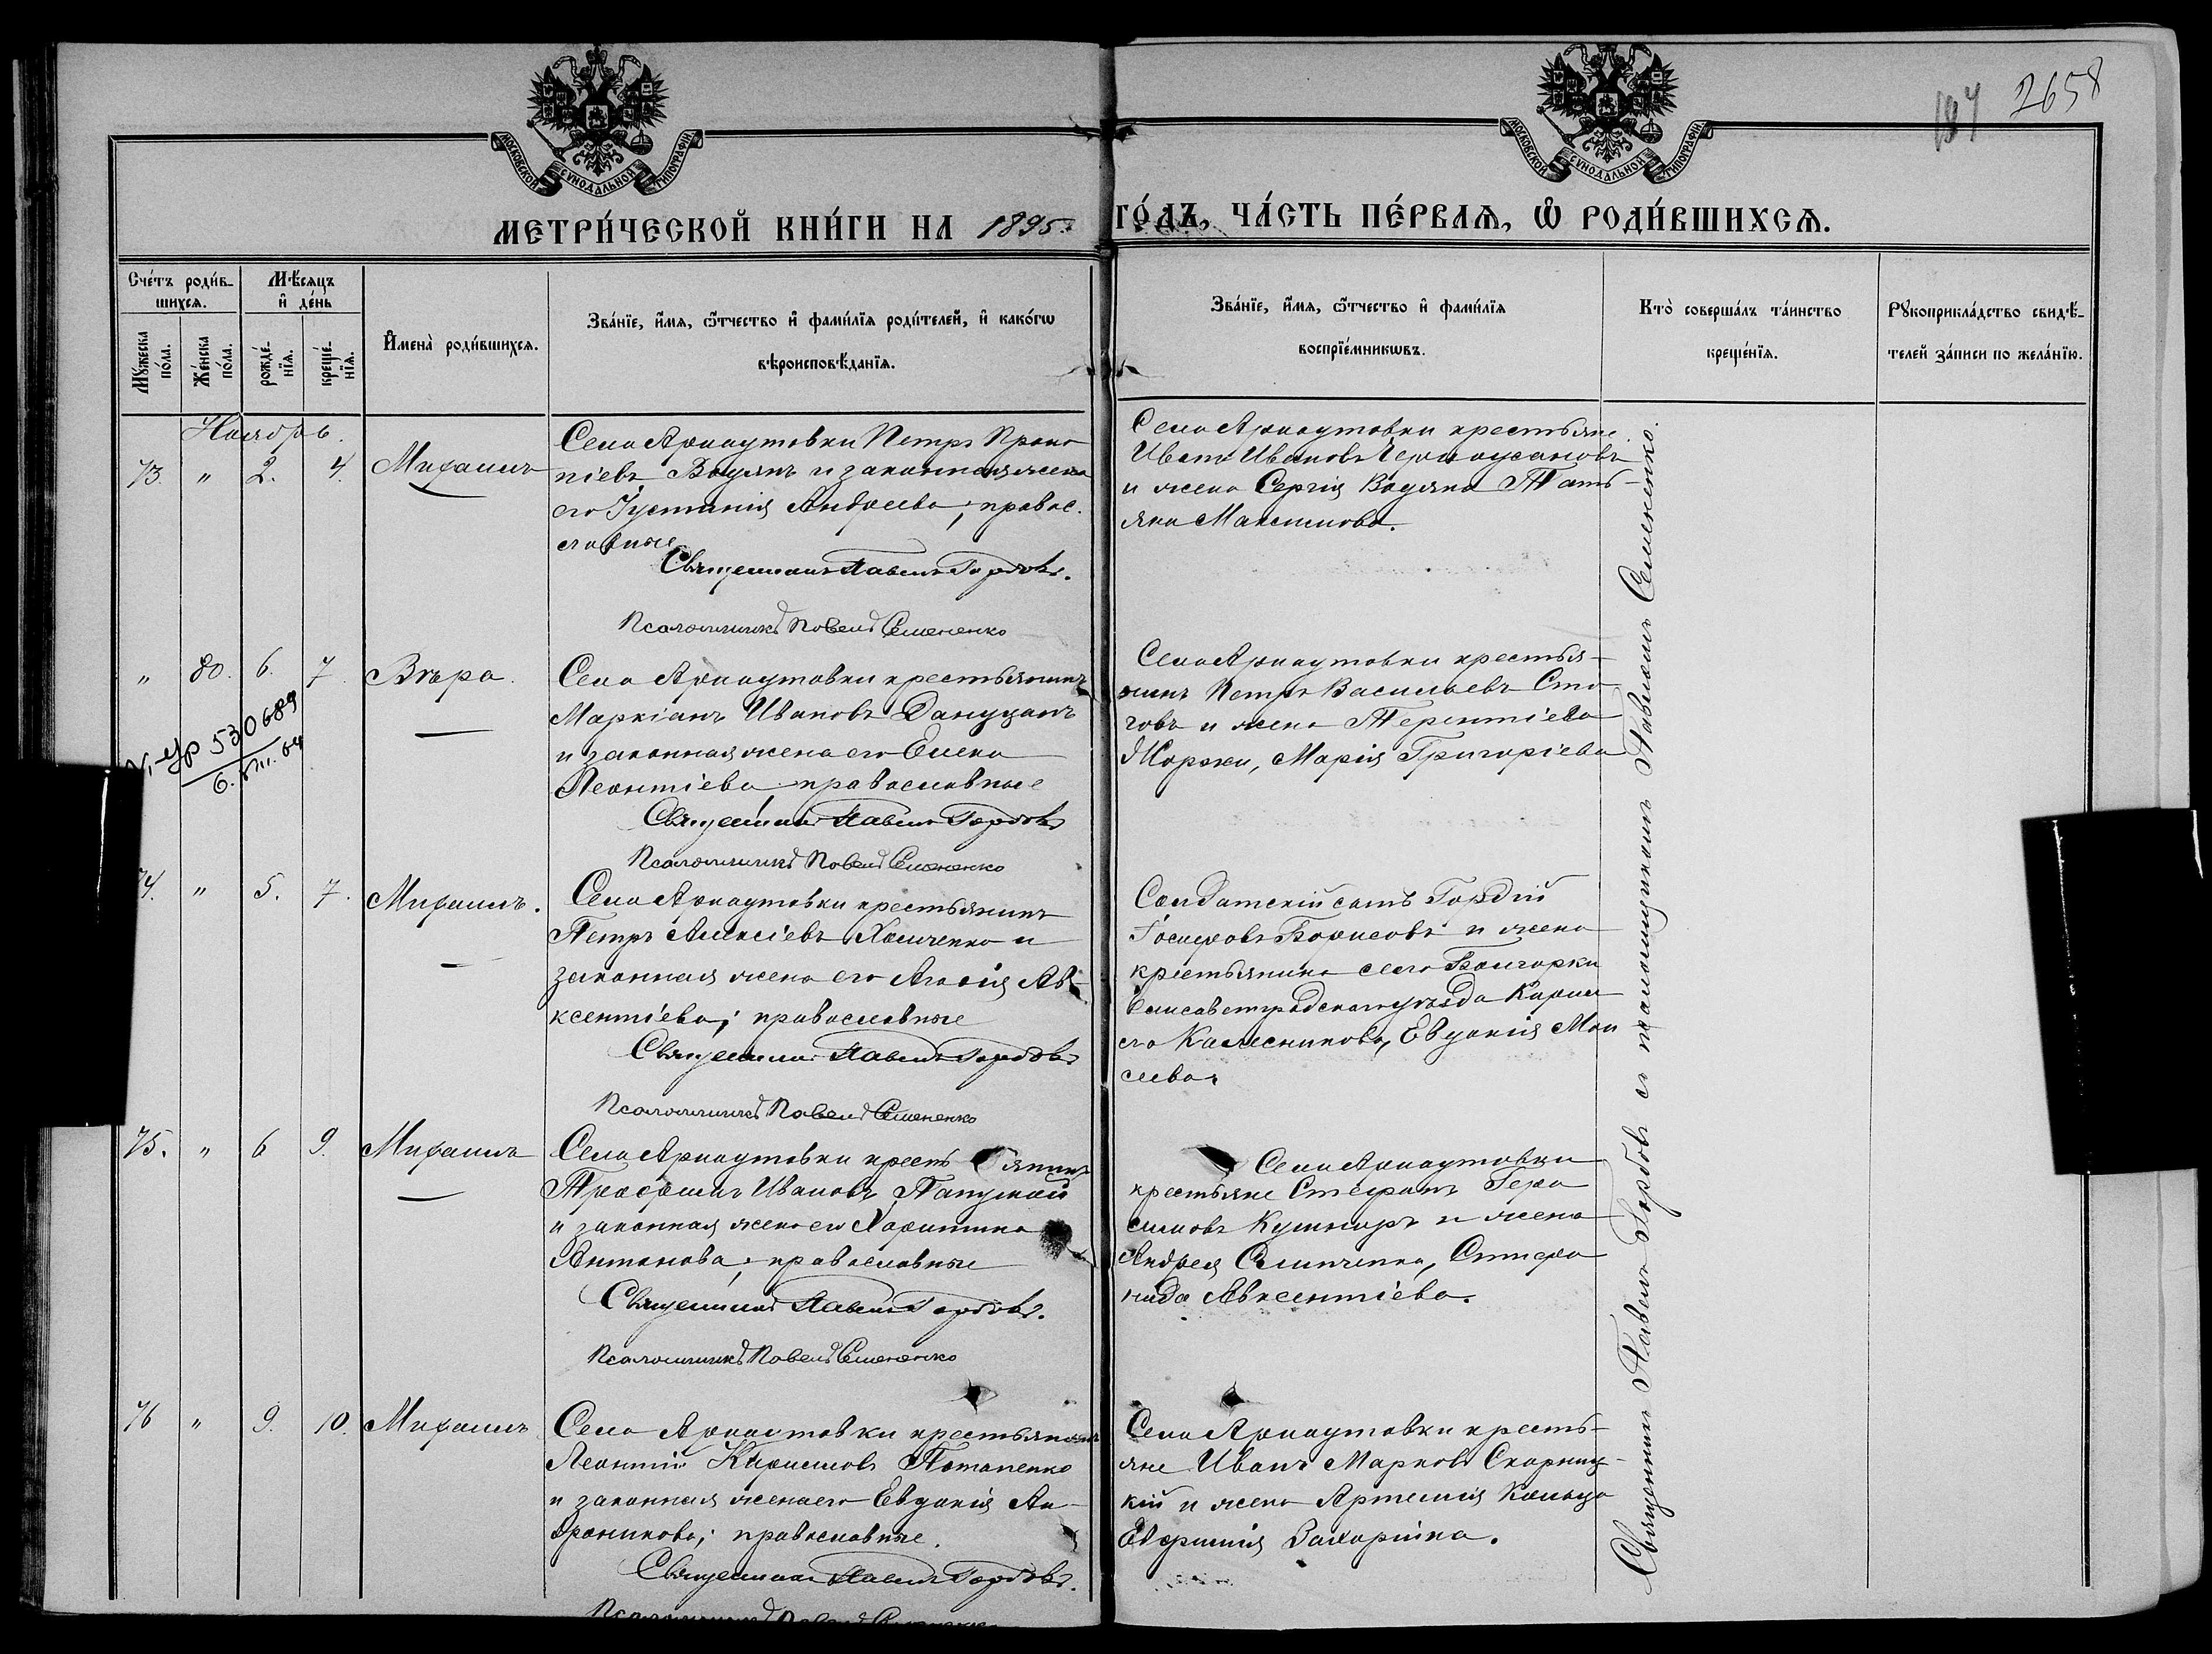 184 2658
МОСКОВСКОЙ СѴНОДАЛЬНОЙ ТИПОГРАФІИ.
МОСКОВСКОЙ СѴНОДАЛЬНОЙ ТИПОГРАФІИ.
МЕТРИ́ЧЕСКОЙ КНИ́ГИ НА 1895. ГО́ДЪ, ЧА́СТЬ ПЕ́РВАѦ, Ѡ҆ РОДИ́ВШИХСѦ.
Сче́тъ роди́в-
шихсѧ.
Мꙋ́жеска по́ла.
Же́нска по́ла.
Мѣ́сѧцъ и҆ де́нь
рожде́-нїѧ.
креще́-нїѧ.
И҆мена̀ роди́вшихсѧ.
Зва́нїе, и҆́мѧ, ѻ҆́тчество и҆ фамѝлїѧ роди́телей, и҆ како́гѡ
вѣроисповѣ́данїѧ.
Зва́нїе, и҆́мѧ, ѻ҆́тчество и҆ фамѝлїѧ
воспрїе́мникѡвъ.
Кто̀ соверша́лъ та́инство
креще́нїѧ.
Рꙋкоприкла́дство свидѣ́-
телей за́писи по жела́нїю.
Ноябрь.
73. " 2. 4. Михаилъ
Села Арнаутовки Петръ Проко
піевъ Водянъ и законная жена
его Іустинія Андреева; правос.
славные
Священникъ Павелъ Горбовъ.
Псаломщикъ Павелъ Семененко
Села Арнаутовки крестьяне
Иванъ Ивановъ
и жена Сергія Водяна Тать-
яна Максимова.
" 80. 6. 7 Вѣра.
530689
6.VIII.64
Села Арнаутовки крестьянинъ
Маркіанъ Ивановъ Дануцанъ
и законная жена его Елена
Леонтіева, православные
Священникъ Павелъ Горбовъ
Псаломщикъ Павелъ Семененко
Села Арнаутовки крестья-
нинъ Петръ Васильевъ Сто-
говъ и жена Терентіева
Марія Григоріева
74. " 5. 7. Михаилъ.
Села Арнаутовки крестьянинъ
Петръ Алексіевъ Хомченко и
законная жена его Агафія Ав-
ксентіева; православные
Священникъ Павелъ Горбовъ
Псаломщикъ Павелъ Семененко
Солдатскій сынъ Гордій
Іосифовъ Борисовъ и жена
крестьянина села Болгарки
Елисаветградскаго уѣзда Кирил
ла Колесникова, Евдокія Мои
сеева.
75. " 6 9. Михаилъ
Села Арнаутовки крестьянинъ
Трофимъ Ивановъ
и законная жена его Харитина
Антонова; православные
Священникъ Павелъ Горбовъ.
Псаломщикъ Павелъ Семененко
Села Арнаутовки
крестьяне Стефанъ Гера
симовъ Кушниръ и жена
Андрея Слипченка, Стефа
нида Авксентіева.
76 " 9. 10. Михаилъ
Села Арнаутовки крестьянинъ
Леонтій Кирилловъ Потапенко
и законная жена его Евдокія Ан-
дроникова; православные.
Священникъ Павелъ Горбовъ.
Псаломщикъ Павелъ Семененко
Села Арнаутовки кресть-
яне Иванъ Марковъ Скорниц-
кій и жена Артемія Кольца
Евфимія Захаріина.
Священникъ Павелъ Горбовъ съ псаломщикомъ Павломъ Семененко.